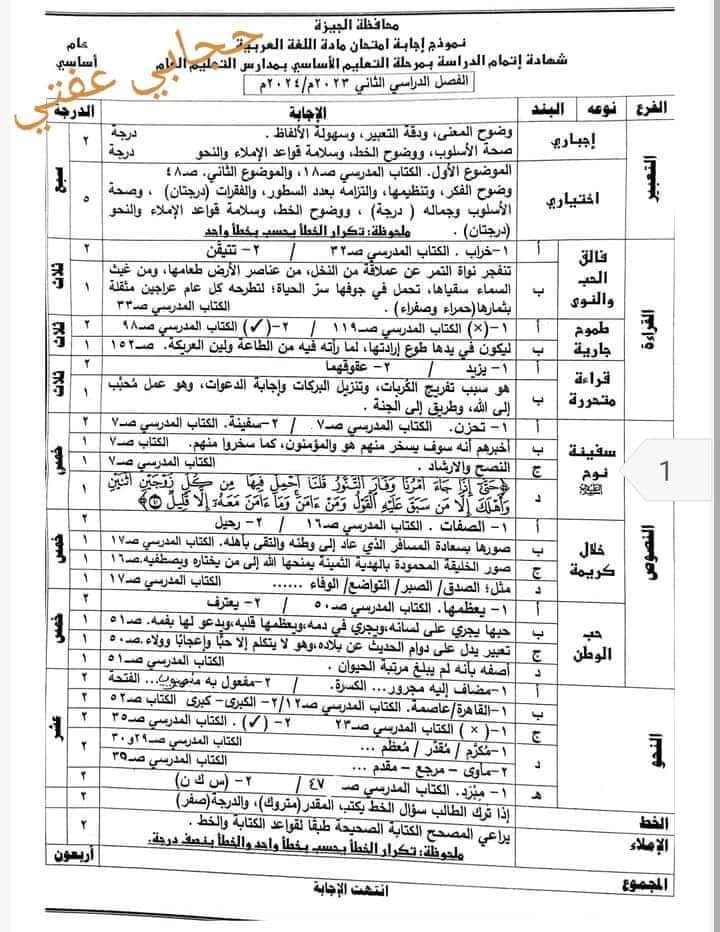 محافظة الجيزة
نموذج إجابة امتحان مادة اللغة العربية
عام
شهادة إتمام الدراسة بمرحلة التعليم الأساسي بمدارس التعليم العام
أساسي
الفصل الدراسي الثاني ٢٠٢٣م/٢٠٢٤م
حجابي عفتي
الفرع نوعه البند الإجابة الدرجة
التعبير
إجباري
وضوح المعنى، ودقة التعبير، وسهولة الألفاظ . درجة
صحة الأسلوب، ووضوح الخط، وسلامة قواعد الإملاء والنحو درجة
٢
سبع
اختياري
الموضوع الأول. الكتاب المدرسي صـ١٨، والموضوع الثاني. صـ٤٨
وضوح الفكر، وتنظيمها، والتزامه بعدد السطور، والفقرات (درجتان) ، وصحة
الأسلوب وجماله ( درجة) ، ووضوح الخط، وسلامة قواعد الإملاء والنحو
(درجتان) . ملحوظة: تكرار الخطأ يحسب بخطأ واحد
٥
القراءة
فالق الحب والنوى
أ ١-خراب . الكتاب المدرسي صـ٣٢ / ٢- تتيقّن ٢
ب تنفجر نواة التمر عن عملاقة من النخل، من عناصر الأرض طعامها، ومن غيث
السماء سقياها، تحمل في جوفها سرّ الحياة؛ لتطرحه كل عام عراجين مثقلة
بثمارها(حمراء وصفراء) . الكتاب المدرسي صـ٣٣
١
ثلاث
طموح جارية
أ ١- (×) الكتاب المدرسي صـ١١٩ / ٢-(✓) الكتاب المدرسي صـ٩٨ ٢
ب ليكون في يدها طوع إرادتها، لما رأته فيه من الطاعة ولين العريكة. صـ١٥٢ ١
ثلاث
قراءة متحررة
أ ١- يزيد / ٢- عقوقهما ٢
ب هو سبب تفريج الكُربات، وتنزيل البركات وإجابة الدعوات، وهو عمل مُحبَّب
إلى الله، وطريق إلى الجنة .
١
ثلاث
النصوص
سفينة نوح
أ ١- تحزن. الكتاب المدرسي صـ٧ / ٢-سفينة. الكتاب المدرسي صـ٧ ٢
ب أخبرهم أنه سوف يسخر منهم هو والمؤمنون، كما سخروا منهم. الكتاب صـ٧ ١
ج النصح والارشاد . الكتاب المدرسي صـ٧ ١
د ﴿حَتَّىٰ إِذَا جَاءَ أَمْرُنَا وَفَارَ التَّنُّورُ قُلْنَا احْمِلْ فِيهَا مِن كُلٍّ زَوْجَيْنِ اثْنَيْنِ
وَأَهْلَكَ إِلَّا مَن سَبَقَ عَلَيْهِ الْقَوْلُ وَمَنْ ءَامَنَ وَمَا ءَامَنَ مَعَهُۥٓ إِلَّا قَلِيلٌ﴾
١
خمس
1
خلال كريمة
أ ١- الصفات . الكتاب المدرسي صـ١٦ / ٢- رحيل ٢
ب صورها بسعادة المسافر الذي عاد إلى وطنه والتقى بأهله. الكتاب المدرسي صـ١٧ ١
ج صور الخليقة المحمودة بالهدية الثمينة يمنحها الله إلى من يختاره ويصطفيه.صـ١٦ ١
د مثل؛ الصدق/ الصبر/ التواضع/ الوفاء ...... الكتاب المدرسي صـ١٧ ١
خمس
حب الوطن
أ ١- يعظمها. الكتاب المدرسي صـ٥٠ / ٢- يعترف ٢
ب حبها يجري على لسانه،ويجري في دمه،ويعظمها قلبه،ويدعو لها بفمه. صـ٥١ ١
ج تعبير يدل على دوام الحديث عن بلاده،وهو لا يتكلم إلا حبًّا وإعجابًا وولاء.صـ٥٠ ١
د أصفه بأنه لم يبلغ مرتبة الحيوان . الكتاب المدرسي صـ٥١ ١
خمس
النحو
أ ١-مضاف إليه مجرور... الكسرة. / ٢-مفعول به منصوب... الفتحة ٢
ب ١-القاهرة/عاصمة. الكتاب المدرسي صـ١٢/ ٢-الكبرى- كبرى الكتاب صـ٥٢ ٢
ج ١- ( × ) الكتاب المدرسي صـ٢٣ ٢- (✓). الكتاب المدرسي صـ٣٥ ٢
د ١-مُكرَّم / مُقدَّر / مُعظَّم ... الكتاب المدرسي صـ٢٩و٣٠
٢-مأوى – مرجع – مقدم ... الكتاب المدرسي صـ٣٥
٢
هـ ١- مِبْرَد. الكتاب المدرسي صـ ٤٧ / ٢- (س ك ن) ٢
عشر
الخط إذا ترك الطالب سؤال الخط يكتب المقدر(متروك)، والدرجة(صفر) ٢
الإملاء يراعي المصحح الكتابة الصحيحة طبقًا لقواعد الكتابة والخط .
ملحوظة: تكرار الخطأ يحسب بخطأ واحد والخطأ بنصف درجة.
٢
المجموع أربعون
انتهت الإجابة